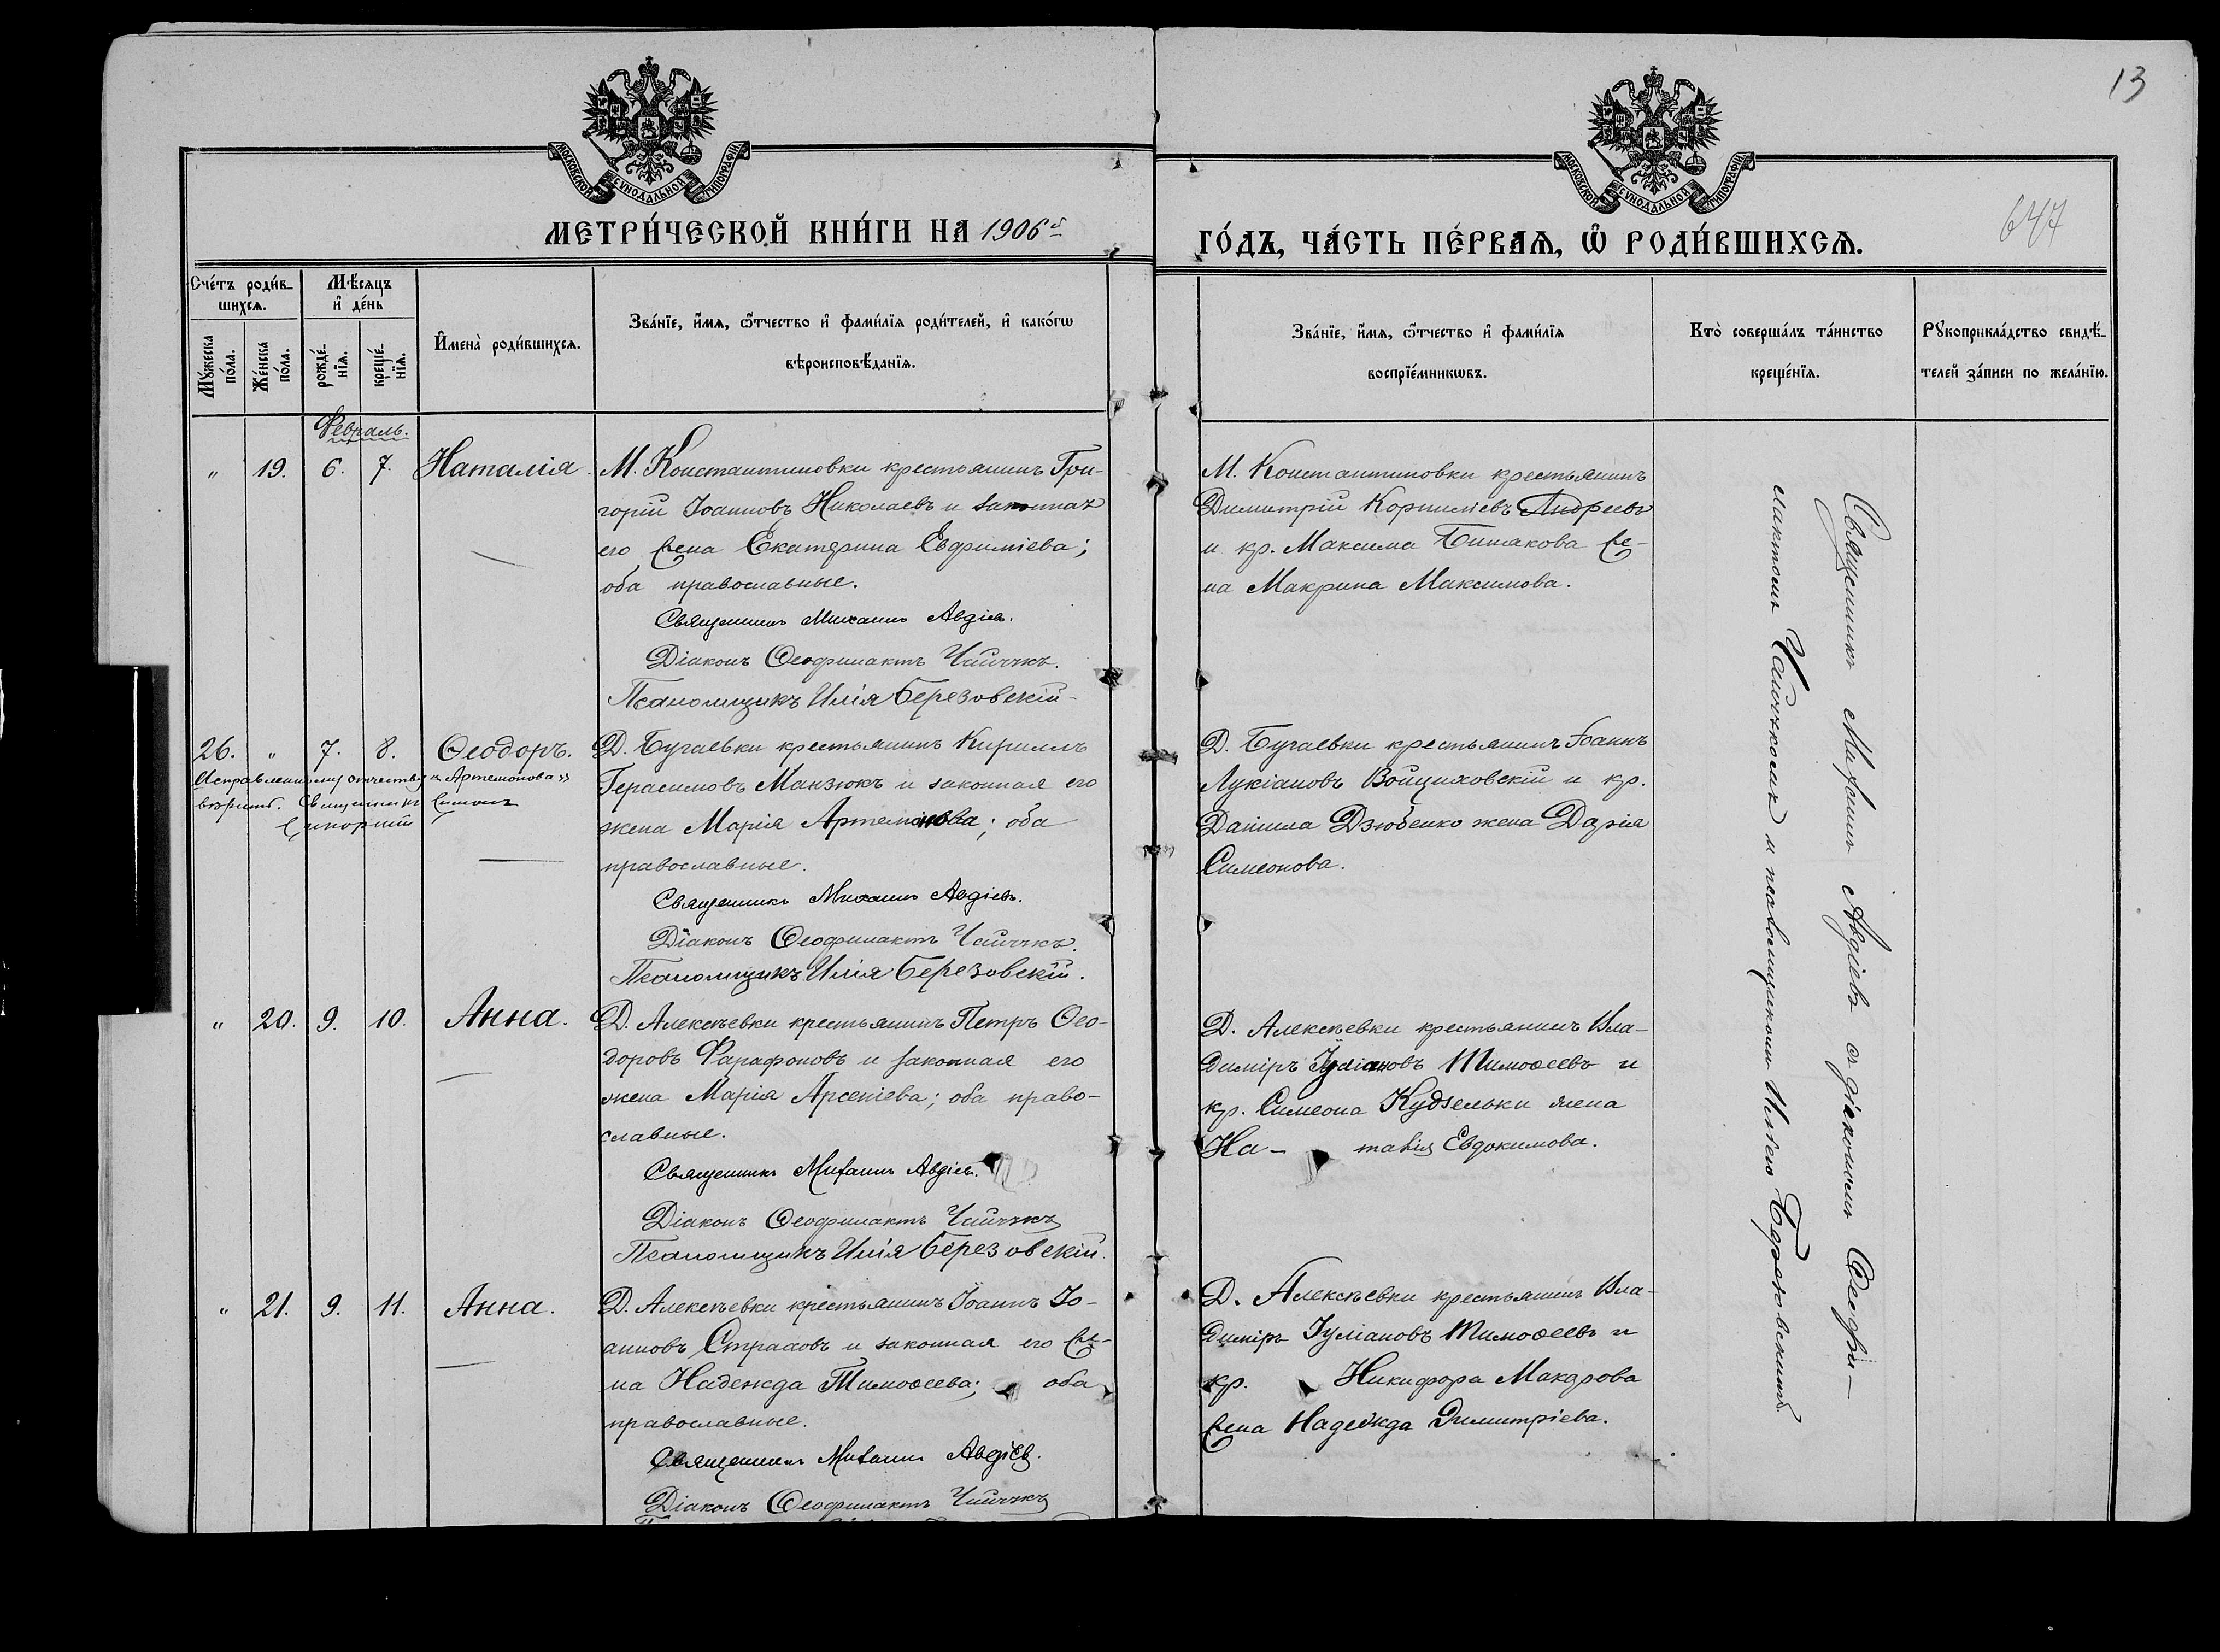 13
647
МОСКОВСКОЙ СѴНОДАЛЬНОЙ ТИПОГРАФІИ
МОСКОВСКОЙ СѴНОДАЛЬНОЙ ТИПОГРАФІИ
МЕТРИ́ЧЕСКОЙ КНИ́ГИ НА 1906й
ГО́ДЪ, ЧА́СТЬ ПЕ́РВАѦ, Ѽ РОДИ́ВШИХСѦ.
Сче́тъ роди́в-
шихсѧ.
Мꙋ́жеска
по́ла.
Же́нска
по́ла.
Мѣ́сѧцъ
и҆ де́нь
рожде́-
нїѧ.
креще́-
нїѧ.
И҆мена̀ роди́вшихсѧ.
Зва́нїе, и҆́мѧ, ѻ҆́тчество и҆ фами́лїѧ роди́телей, и҆ како́гѡ
вѣроисповѣ́данїѧ.
Зва́нїе, и҆́мѧ, ѻ҆́тчество и҆ фами́лїѧ
воспрїе́мникѡвъ.
Кто̀ соверша́лъ та́инство
креще́нїѧ.
Рꙋкоприкла́дство свидѣ́-
телей за́писи по жела́нїю.
Февраль.
" 19. 6. 7. Наталія
М. Константиновки крестьянинъ Гри-
горій Іоанновъ Николаевъ и законная
его жена Екатерина Евфиміева;
оба православные.
Священникъ Михаилъ Авдіев.
Діаконъ Ѳеофилактъ Чайчукъ.
Псаломщикъ Илія Березовскій
М. Константиновки крестьянинъ
Димитрій Корниліевъ Андреевъ
и кр. Максима Бинякова же-
на Макрина Максимова.
26. " 7. 8. Ѳеодоръ.
Исправленному отчеству "Артемонова"
вѣрить. Священникъ Симонъ
Д. Бугаевки крестьянинъ Кириллъ
Герасимовъ Манзюкъ и законная его
жена Марія Артемонова; оба
православные.
Священникъ Михаилъ Авдіевъ.
Діаконъ Ѳеофилактъ Чайчукъ.
Псаломщикъ Илія Березовскій.
Д. Бугаевки крестьянинъ Іоаннъ
Лукіановъ Войциховскій и кр.
Даніила Дзюбенко жена Дарія
Симеонова.
" 20. 9. 10. Анна.
Д. Алексѣевки крестьянинъ Петръ Ѳео-
доровъ Фарафоновъ и законная его
жена Марія Арсеніева; оба право-
славные.
Священникъ Михаилъ Авдіев.
Діаконъ Ѳеофилактъ Чайчукъ
Псаломщикъ Илія Березовскій.
Д. Алексѣевки крестьянинъ Вла-
диміръ Іуліановъ Тимоѳеевъ и
кр. Симеона Кудзельки жена
На- талія Евдокимова.
" 21. 9. 11. Анна.
Д. Алексѣевки крестьянинъ Іоаннъ Іо-
анновъ Страховъ и законная его же-
на Надежда Тимоѳеева; оба
православные.
Священникъ Михаилъ Авдіев.
Діаконъ Ѳеофилактъ Чайчукъ
Д. Алексѣевки крестьянинъ Вла-
диміръ Іуліановъ Тимоѳеевъ и
кр. Никифора Макарова
жена Надежда Димитріева.
Священникъ Михаилъ Авдіевъ съ діакономъ Ѳеофи-
лактомъ Чайчукомъ и псаломщикомъ Иліею Березовскимъ.